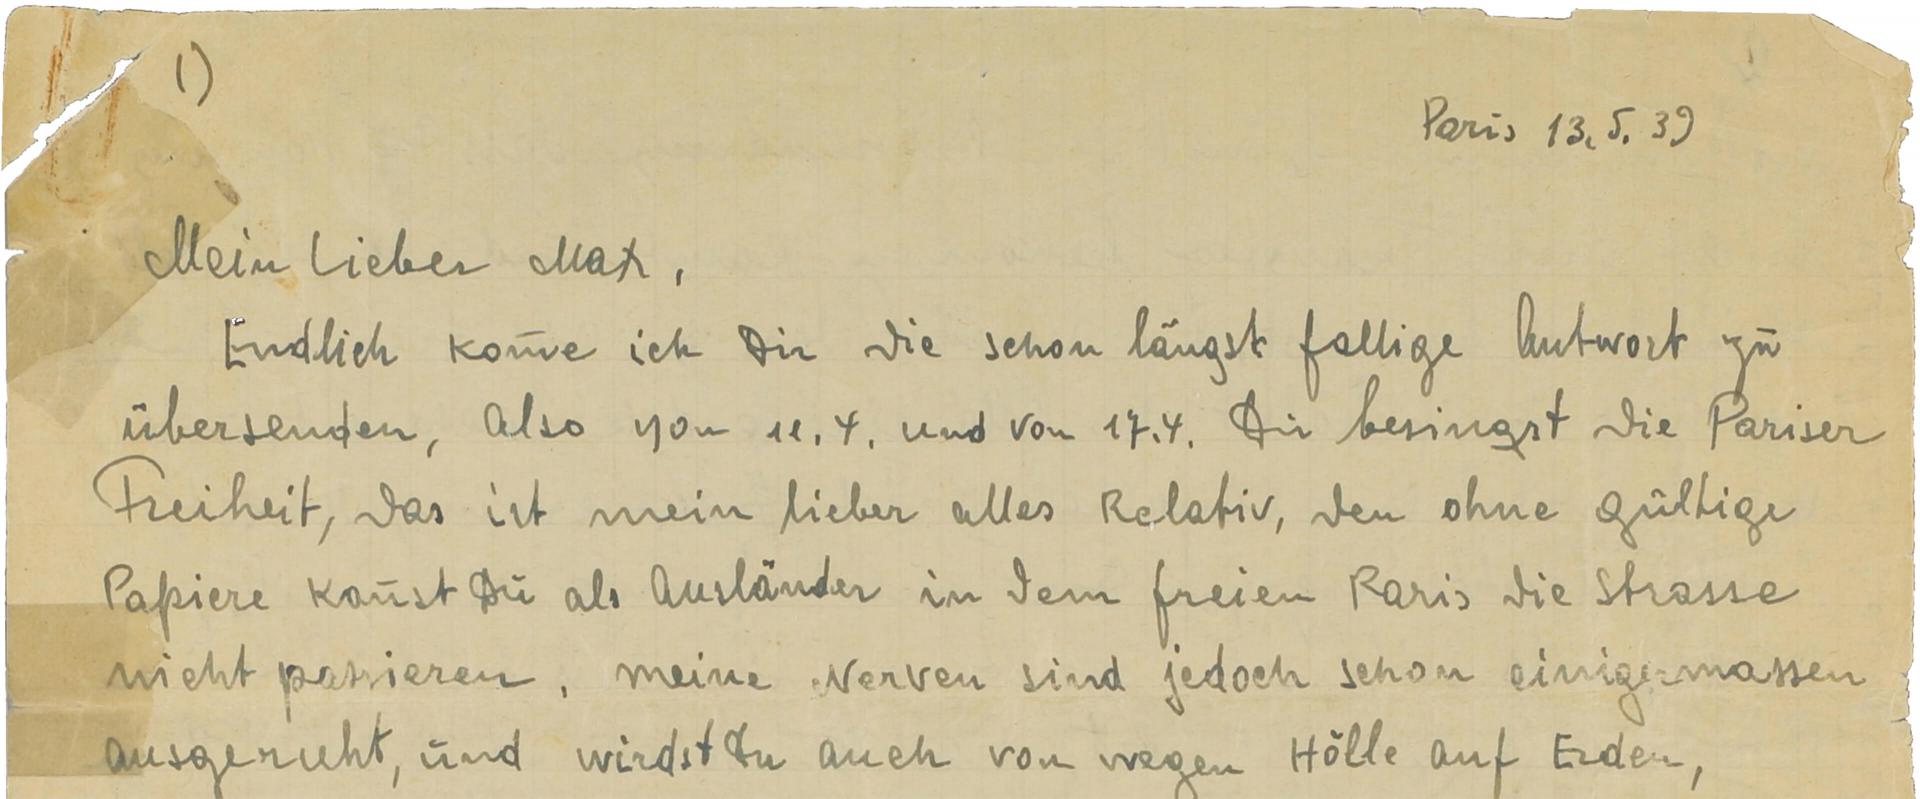 1)
Paris 13.5.39
Mein lieber Max,
Endlich kom̄e ich Dir die schon längst fallige Antwort zu
übersenden, also von 11.4. und von 17.4. Du besingst die Pariser
Freiheit, das ist mein lieber alles Relativ, den ohne gültige
Papiere kan̄st Du als Ausländer in dem freien Paris die Strasse
nicht passieren, meine Nerven sind jedoch schon einigermassen
ausgeruht, und wirdst Du auch von wegen Hölle auf Erden,